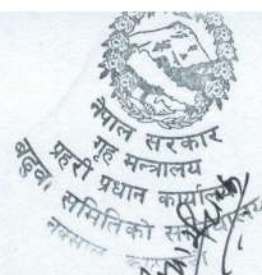 नेपाल सरकार
गृह मन्त्रालय
प्रहरी प्रधान कार्यालय
बढुवा समितिको
नक्साल